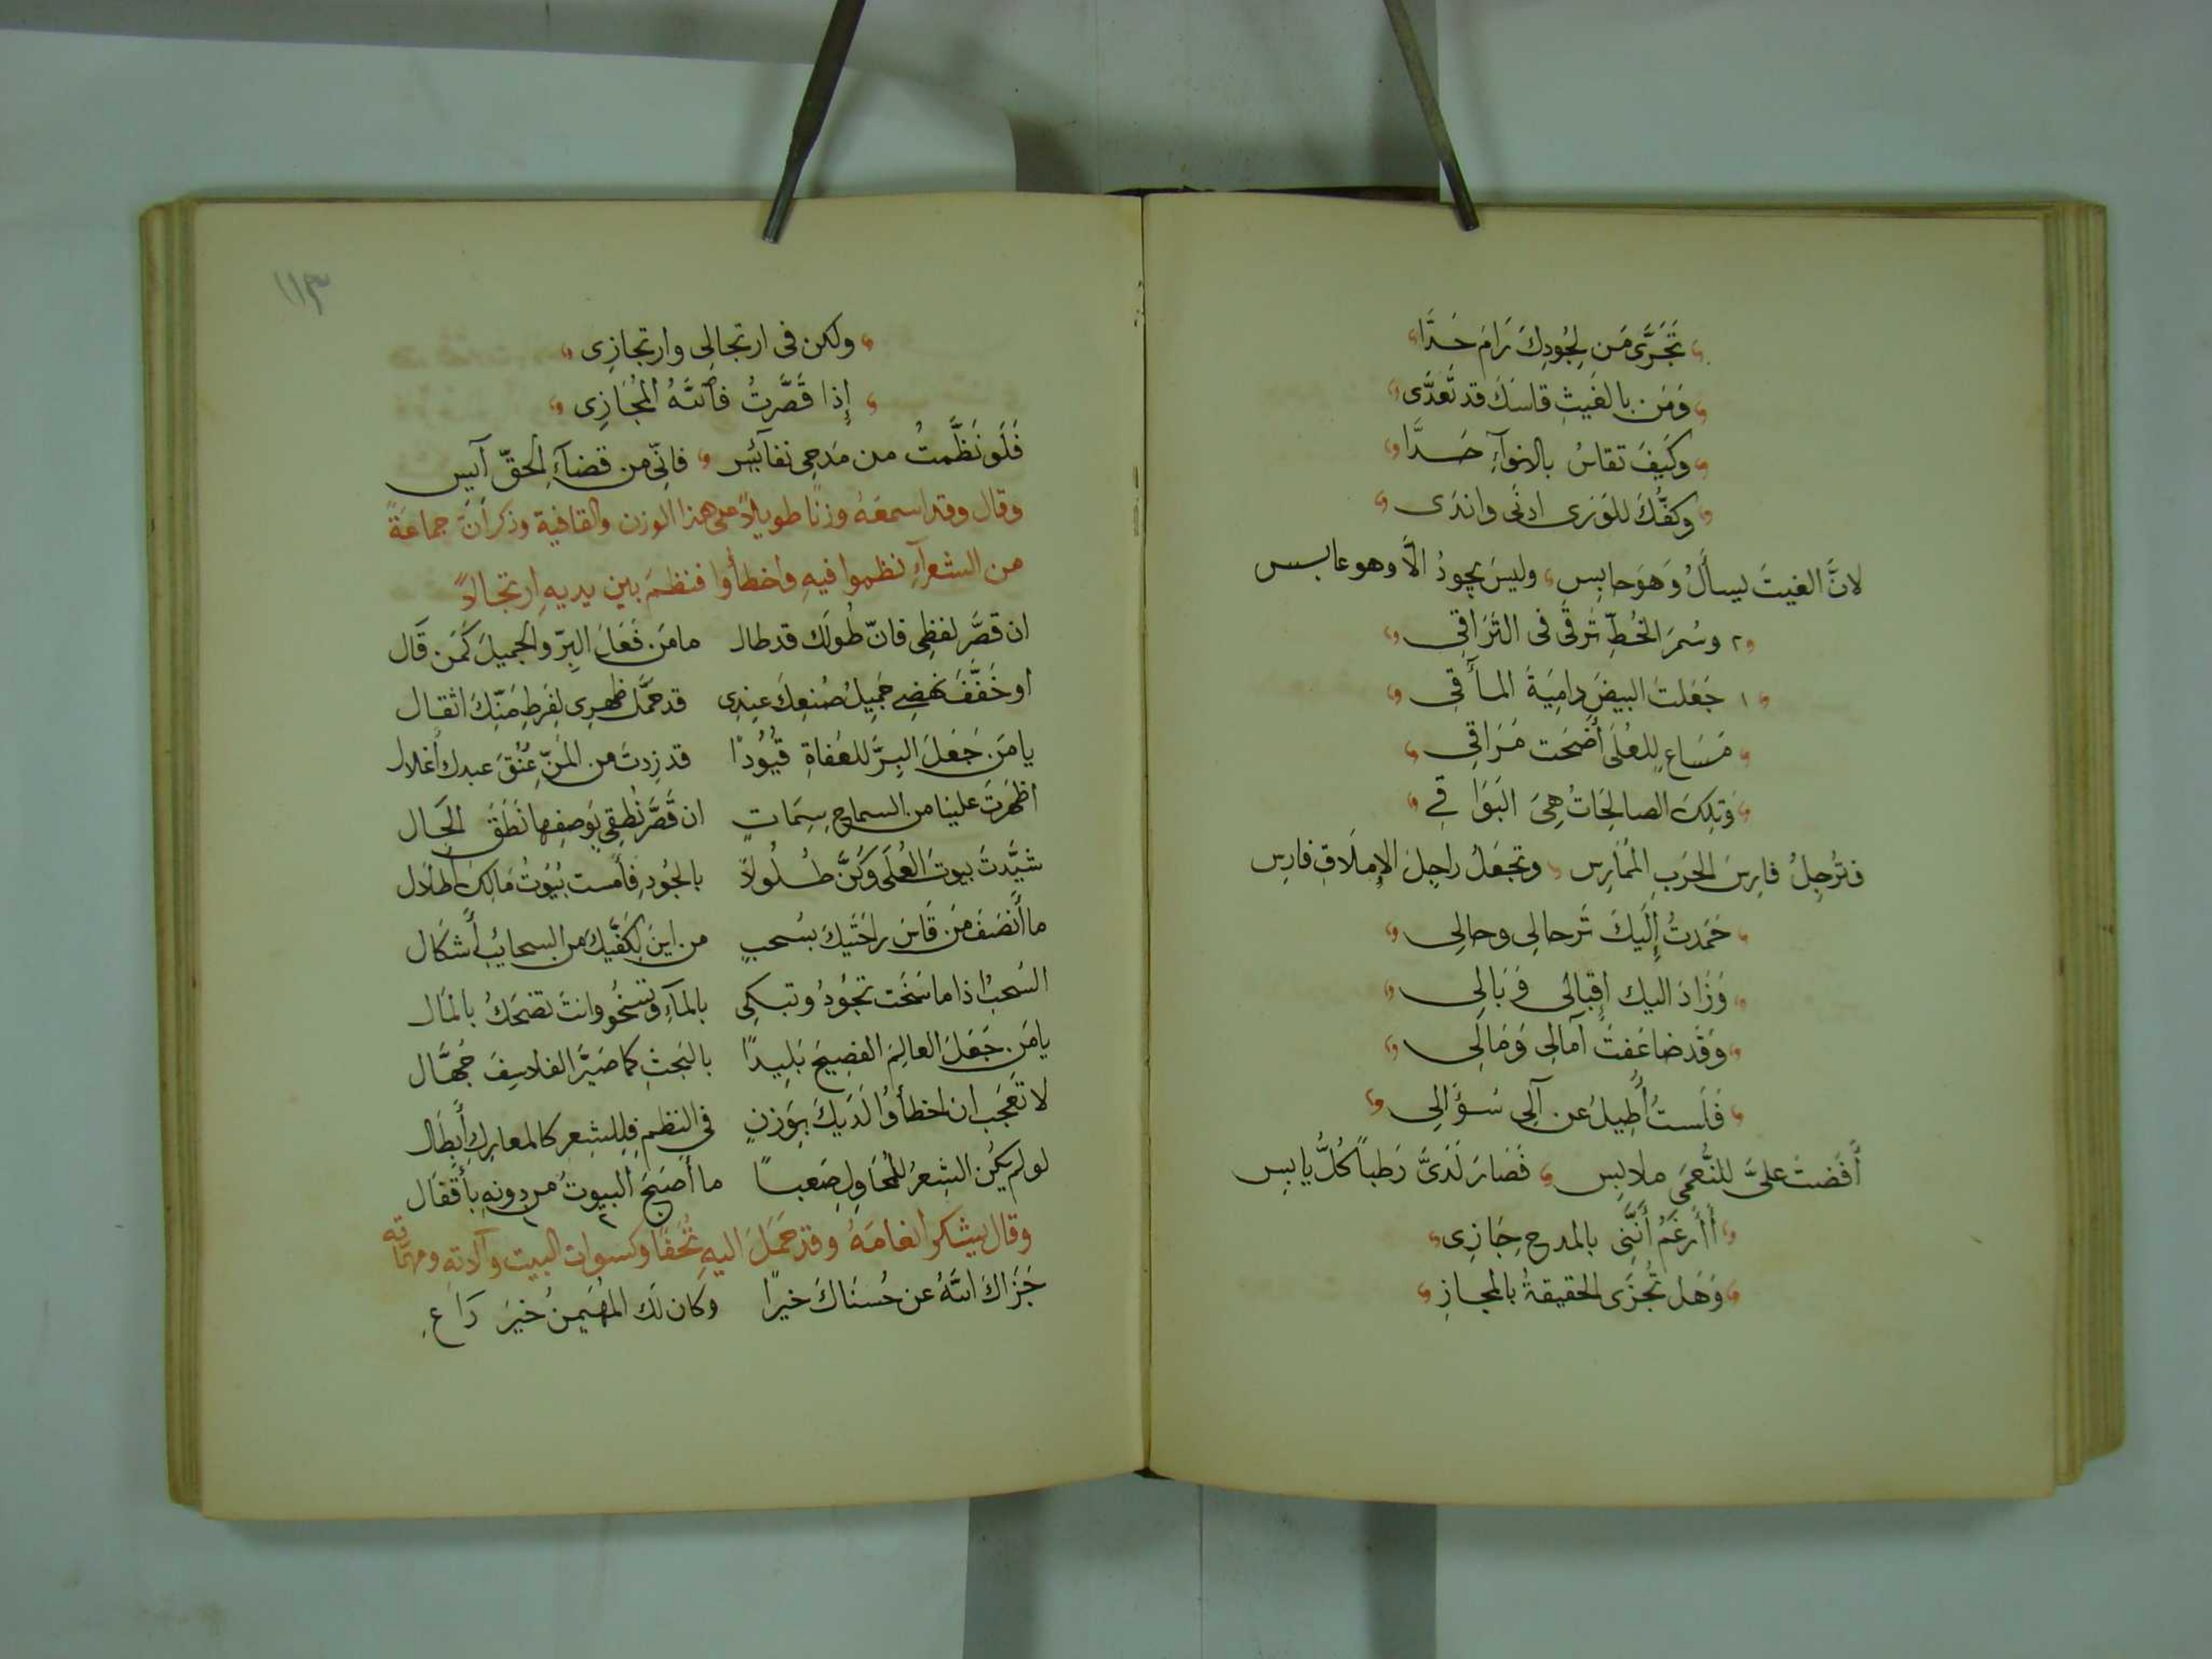 تَجَرَّى مَن لِجُودِكَ رَامَ حَدَّا
وَمَن بالغَيثِ قاسَكَ قد تَعَدَّى
وكَيفَ تقاسُ بالانوآءِ حَدَّا
وكفُّكَ للوَرَى ادنَى واندَى
لانَّ الغيثَ يسأَلُ وَهوَ حابِس وليسَ يجودُ الّا وهو عابس
٢ وسُمرَ الخُطِّ تَرقَى فى التَرَاقِى
١ جَعَلتَ البيضَ دامِيَةَ المـأقِى
مَسَاعٍ لِلعُلَى أَضحَت مَرَاقِى
وَتِلكَ الصالِحَاتُ هِىَ البَوَاقِى
فتُرجِلُ فارِسَ الحَربِ المُمَارِس وتجعَلُ راجِلَ الإِملَاقِ فارِس
حَمَدتُ إِلَيكَ تَرحالِى وحالِى
وَزَادَ اليك إِقبالى وَبَالِى
وَقَد ضاعَفتَ آمالِى وَمَالِى
فَلَستُ أُطِيلُ عن آلِى سُؤَالِى
أَفَضتَ علىَّ للنُّعمَى ملابِس فَصَارَ لَدَىَّ رَطباً كُلُّ يابِس
أَأَرغَمُ أَنَّنِى بالمدحِ جَازِى
وَهَل تُجزَى الحقيقةُ بالمجازِ
١١٣
ولكن فى ارتجالِى وارتجازِى
إِذا قَصَّرتُ فاَللهُ المُجَازِى
فَلَو نَظَّمتُ من مَدحِى نفآئس فانِّى من قضآءِ الحقّ آيس
وقال وقد اسمعَهُ وزنًا طويلاً على هذا الوزن والقافية وذكر أنّ جماعَةً
من الشعرآءِ نظموا فيهِ واخطأُوا فنظمَ بين يديهِ ارتجالاً
ان قصَّر لفظِى فانّ طُولَك قد طال مامَن فَعَلَ البِرّ والجميلَ كَمَن قَال
او خَفَّفَ نهضِى جَمِيلُ صُنعِكَ عِندِى قد حمَّلَ ظهرِى لِفَرطِ مَنِّكَ اثقال
يا مَن جَعَلَ البِرَّ للعُفاةِ قيُودًا قد زِدتَ من المَنِّ عُنقَ عبدك أغلال
اظهَرتَ علينا من السماحِ سِمَاتٍ ان قَصَّرَ نُطقِى بِوَصفِها نَطَقَ الحَال
شيَّدتَ بيوتَ العُلَى وَكُنَّ طُلُولاً بالجُودِ فأَمست بيُوتُ مَالِكَ أطلال
ما أَنصَفَ مَن قَاسَ راحَتَيكَ بسُحبٍ من اينَ لِكَفَّيكَ من السحايبِ أَشكَال
السُحبُ اذا ما سَخَت تجُودُ وتبكِى بالمآءِ وتسخُو وانتَ تضحَكُ بالمَال
يا مَن جَعَلَ العالِمَ الفصِيحَ بَلِيدًا بالبَحثِ كما صَيَّرَ الفلاسِفَ جُهَّال
لا تَعجَب ان اخطأُوا لَدَيكَ بِوَزنٍ في النظمِ فلِلشِعر كالمعارِكِ أَبطَال
لو لم يكُن الشِعرُ للمُحاوِلِ صَعباً ما أَصبَحَ البيوتُ من دونهِ بأَقفَال
وقال يشكر انعامَهُ وقد حَمَلَ اليهِ تُحَفًا وكسوات البيت وآلاته ومهمّاته
جَزَاك اللهُ عن حُسنَاكَ خيرًا وكان لَك المُهَيمِنُ خيرَ رَاعِ